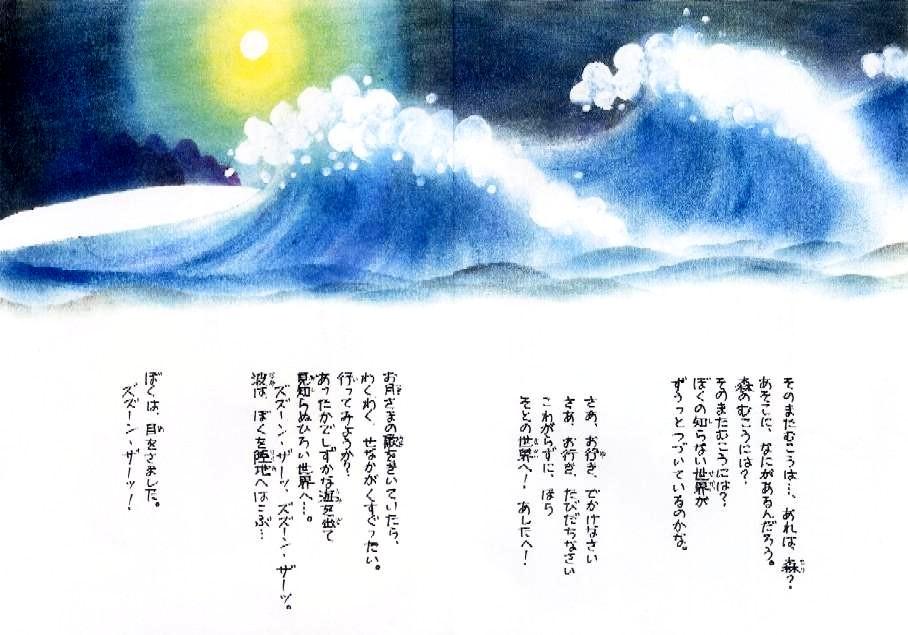 そのまたむこうは…、あれは、森？
あそこに、なにがあるんだろう。
森のむこうには？
そのまたむこうには？
ぼくの知らない世界が
ずうっとつづいているのかな。
さあ、お行き、でかけなさい
さあ、お行き、たびだちなさい
こわがらずに、ほら
そとの世界へ！あしたへ！
お月さまの歌をきいていたら、
わくわく、せなかがくすぐったい。
行ってみようか？
あったかでしずかな海を出て
見知らぬひろい世界へ…。
ズズーン・ザーッ、ズズーン・ザーッ。
波は、ぼくを陸地へはこぶ…
ぼくは、目をさました。
ズズーン・ザーッ！